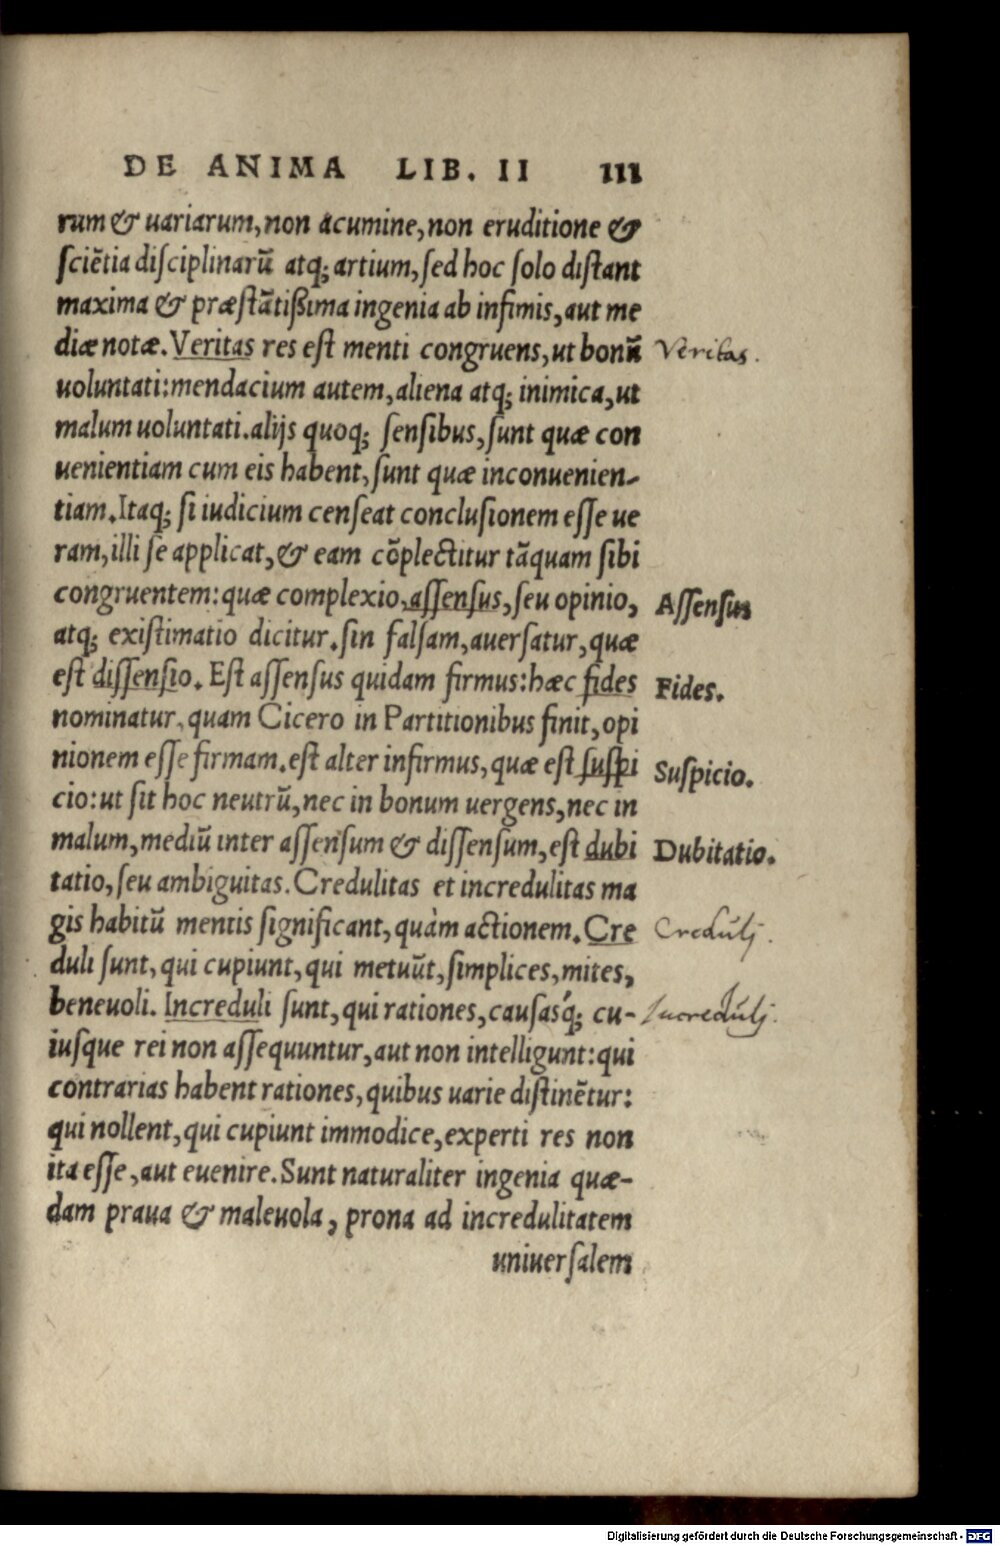 DE ANIMA LIB. II 111
rum & uariarum, non acumine, non eruditione &
ſciẽtia diſciplinarũ atq; artium, ſed hoc ſolo diſtant
maxima & præſtãtißima ingenia ab infimis, aut me
diæ notæ. Veritas res eſt menti congruens, ut bonũ Veritas.
uoluntati: mendacium autem, aliena atq; inimica, ut
malum uoluntati. alijs quoq; ſenſibus, ſunt quæ con
uenientiam cum eis habent, ſunt quæ inconuenien-
tiam. Itaq; ſi iudicium cenſeat concluſionem eſſe ue
ram, illi ſe applicat, & eam cõplectitur tãquam ſibi
congruentem: quæ complexio, aſſenſus, ſeu opinio, Aſſenſus
atq; exiſtimatio dicitur. ſin falſam, auerſatur, quæ
eſt diſſenſio. Eſt aſſenſus quidam firmus: hæc fides Fides.
nominatur, quam Cicero in Partitionibus finit, opi
nionem eſſe firmam. eſt alter infirmus, quæ eſt ſuſpi Suſpicio.
cio: ut ſit hoc neutrũ, nec in bonum uergens, nec in
malum, mediũ inter aſſenſum & diſſenſum, eſt dubi Dubitatio.
tatio, ſeu ambiguitas. Credulitas et incredulitas ma
gis habitũ mentis ſignificant, quàm actionem. Cre Credulj.
duli ſunt, qui cupiunt, qui metuũt, ſimplices, mites,
beneuoli. Increduli ſunt, qui rationes, cauſasq́; cu- Incredulj.
iusque rei non aſſequuntur, aut non intelligunt: qui
contrarias habent rationes, quibus uarie diſtinẽtur:
qui nollent, qui cupiunt immodice, experti res non
ita eſſe, aut euenire. Sunt naturaliter ingenia quæ-
dam praua & maleuola, prona ad incredulitatem
uniuerſalem
Digitalisierung gefördert durch die Deutsche Forschungsgemeinschaft - DFG